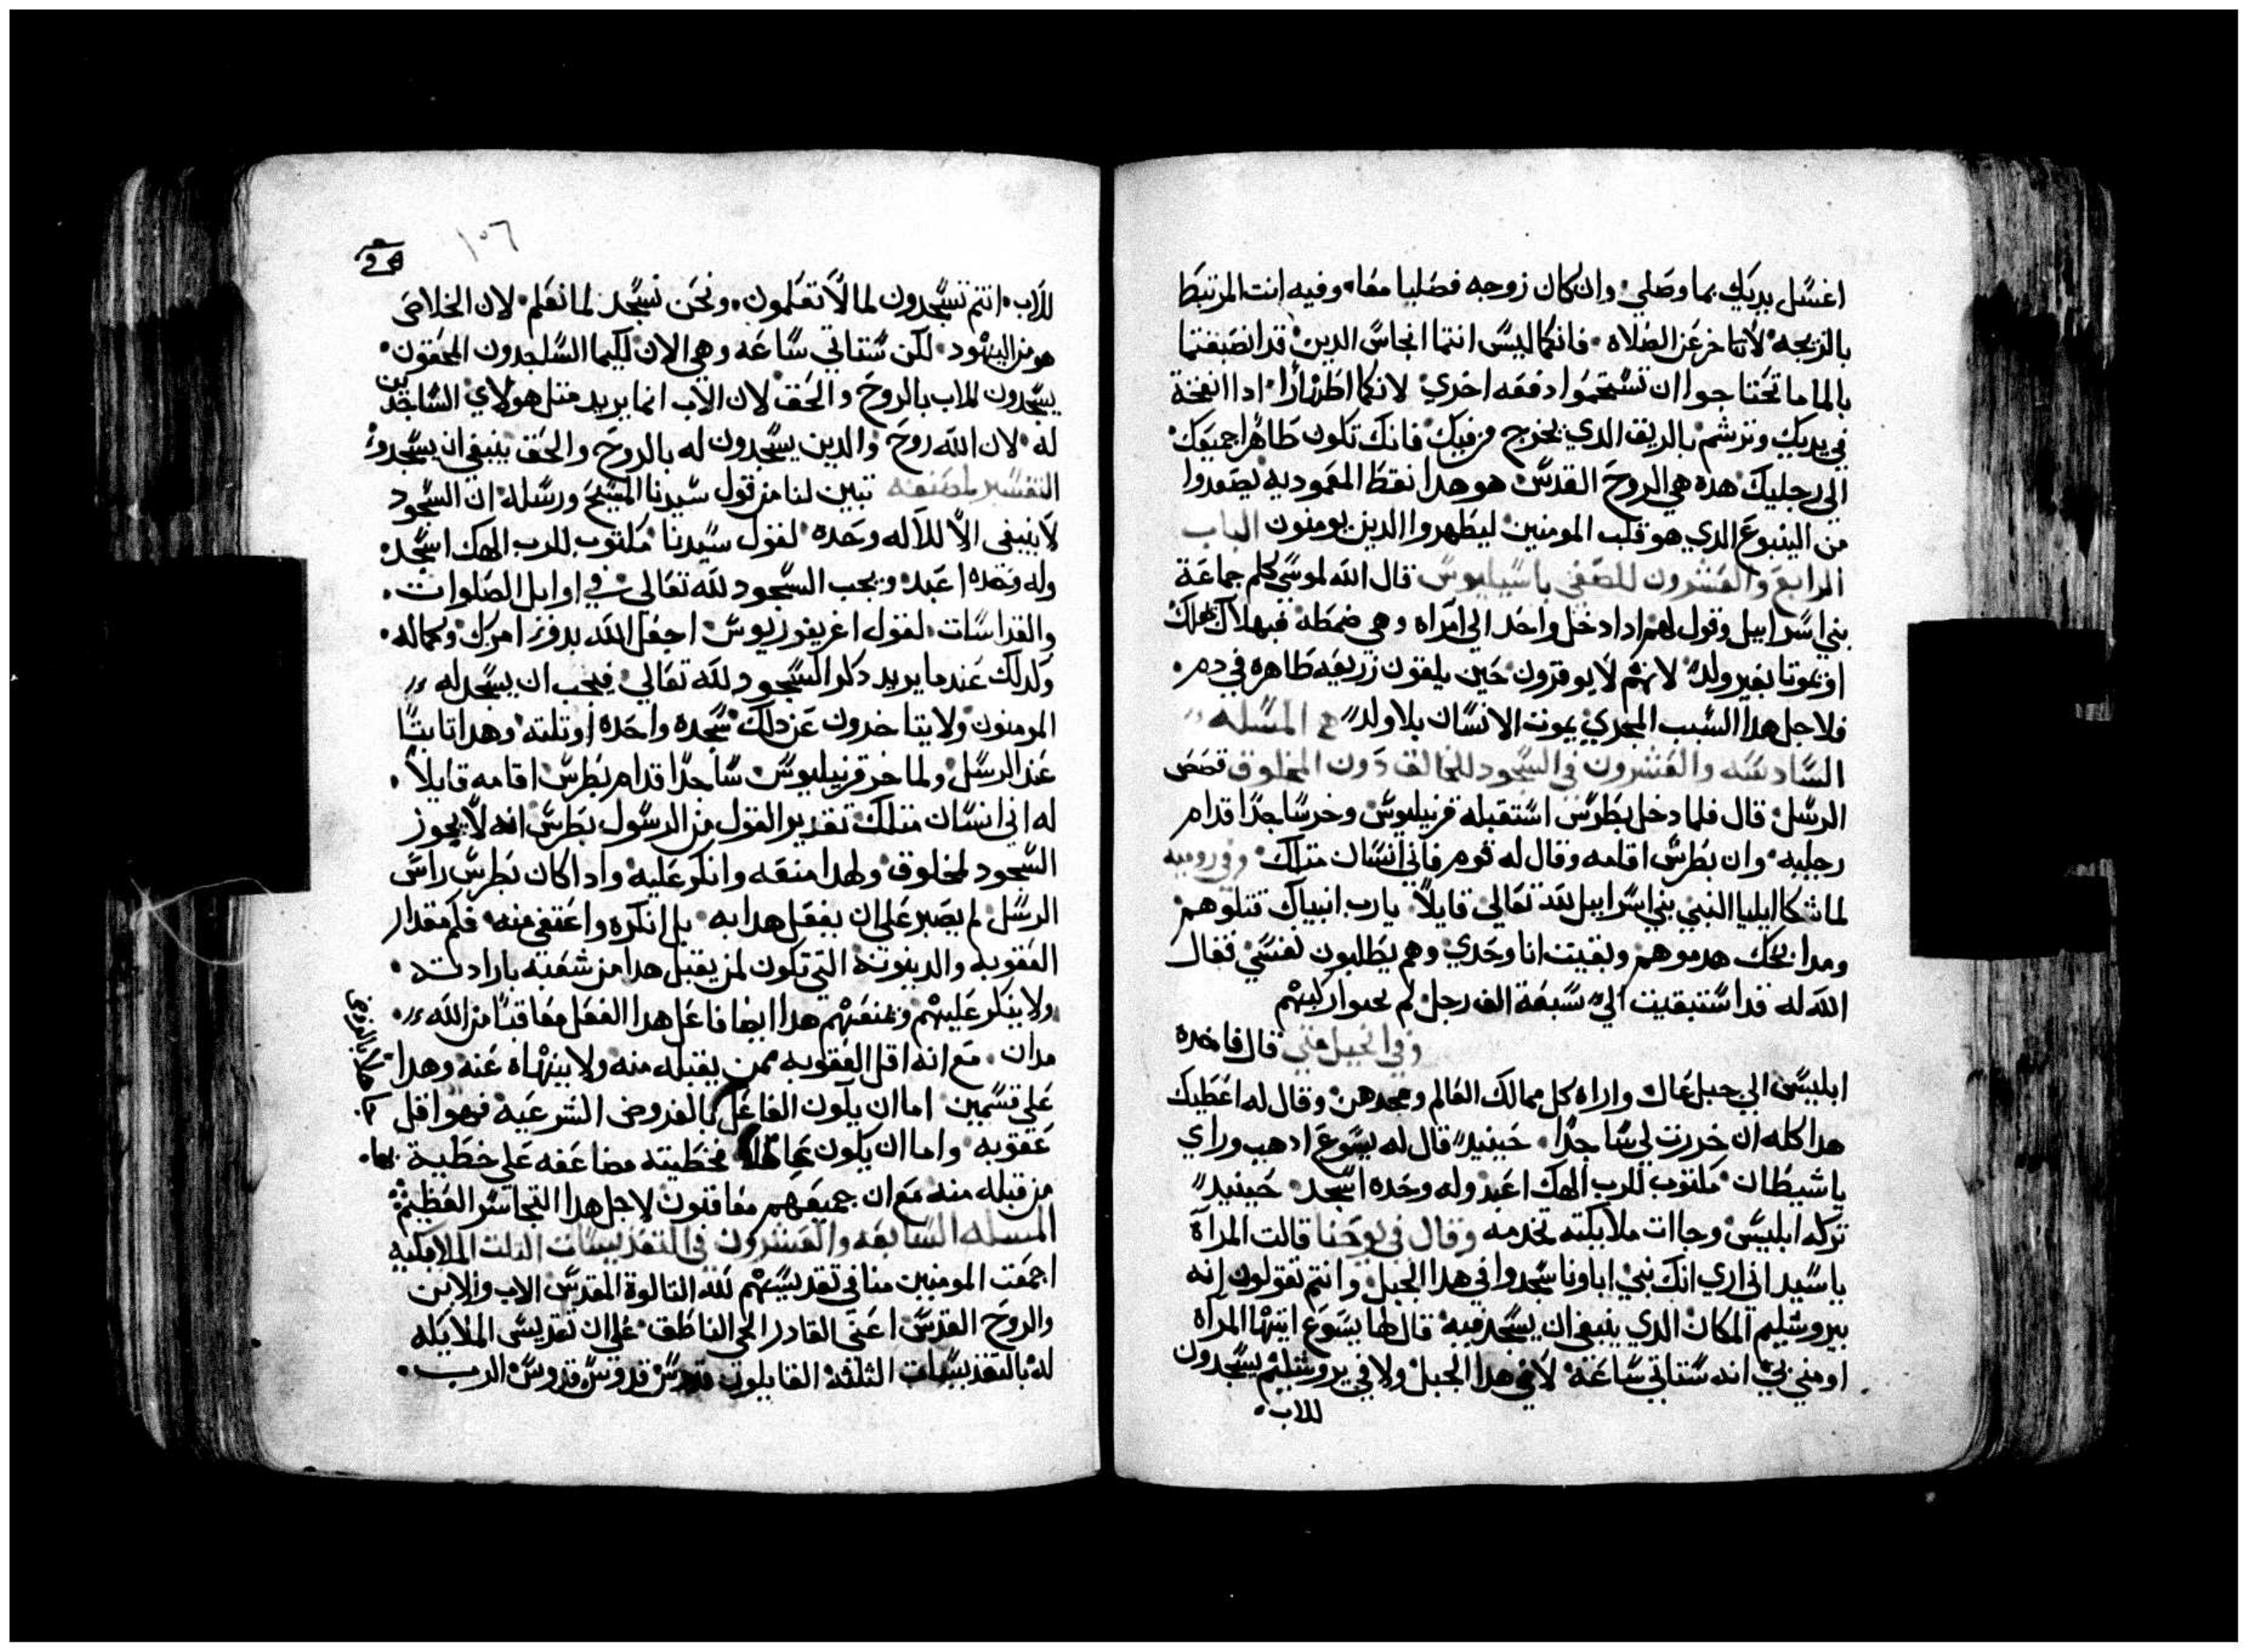 اغسل يديك بما وصلي وان كان زوجه فصليا معا وفيه انت المرتبط
بالزيجه لا تتاخر عن الصلاه فانكما ليس انتما انجاس الدين قد انصبغتما
بالما ما تحتاجوا ان تستحموا دفعه اخري لانكما اطهارا ادا انفخة
في يديك وترشم بالريق الدي يخرج من فيك فانك تكون طاهرا جميعك
الي رجليك هده هي الروح القدس هو هدا نقط المعموديه يصعدوا
من الينبوع الدي هو قلب المومنين ليطهروا الدين يومنون الباب
الرابع والعشرون للصفي باسيليوس قال الله لموسي كلم جماعة
بني اسراييل وقول لهم ادا دخل واحد الي امراه وهي ضمطه فبهلاك يهلك
او يموتا بغير ولد لانهم لا يوقرون حين يلقون زريعه طاهره في دم
فلاجل هدا السبب المجري يموت الانسان بلا ولد المسله
السادسه والعشرون في السجود للخالق دون المخلوق قصص
الرسل قال فلما دخل بطرس استقبله قرنيليوس وخر ساجدا قدام
رجليه وان بطرس اقامه وقال له قوم فاني انسان متلك وفي روميه
لما شكا ايليا النبي بني اسراييل لله تعالي قايلا يارب انبياك قتلوهم
ومدابحك هدموهم وبقيت انا وحدي وهم يطلبون نفسي فقال
الله له قد استبقيت الي سبعة الف رجل لم يحنوا ركبهم
وفي انجيل متي قال فاخده
ابليس الي جبل عال واراه كل ممالك العالم ومجدهن وقال له اعطيك
هدا كله ان خررت لي ساجدا حينيد قال له يسوع ادهب وراي
يا شيطان مكتوب للرب الهك اعبد وله وحده اسجد حينيد
تركه ابليس وجاات ملايكته تخدمه وقال في يوحنا قالت المرآة
يا سيد اني اري انك نبي اباونا سجدوا في هدا الجبل وانتم تقولون انه
بيروشليم المكان الدي ينبغي ان يسجد فيه قال لها يسوع ايتها المرآه
اومني بي انه ستاتي ساعة لا في هدا الجبل ولا في يروشليم يسجدون
للاب
١٠٦
للاب انتم تسجدون لما لا تعلمون ونحن نسجد لما نعلم لان الخلاص
هو من اليهود لكن ستاتي ساعه وهي الان لكيما الساجدون المحقون
يسجدون للاب بالروح والحق لان الآب انما يريد متل هولاي الساجدين
له لان الله روح والدين يسجدون له بالروح والحق ينبغي ان يسجدوا
التفسير لمصنفه تبين لنا من قول سيدنا المسيح ورسله ان السجود
لا ينبغي الا للاله وحده لقول سيدنا مكتوب للرب الهك اسجد
وله وحده اعبد ويجب السجود لله تعالي في اوايل الصلوات
والقداسات لقول اغريغوريوس اجعل الله بدو امرك وكماله
وكدلك عندما يريد دكر السجود لله تعالي فيجب ان يسجد له
المومنون ولا يتاخرون عن دلك سجده واحده او تلته وهدا تابتا
عند الرسل ولما خر قرنيليوس ساجدا قدام بطرس اقامه قايلا
له اني انسان متلك تقدير القول من الرسول بطرس انه لا يجوز
السجود لمخلوق ولهدا منعه وانكر عليه وادا كان بطرس راس
الرسل لم يصبر علي ان يفعل هدا به بل انكره واعتفي منه فكم مقدار
العقوبه والدينونة التي تكون لمن يقبل هدا من شعبه بارادته
ولا ينكر عليهم ويمنعهم هدا ايضا فاعل هدا الفعل معاقبا من الله
مدان مع انه اقل العقوبه ممن يقبله منه ولا ينهاه عنه وهدا
علي قسمين اما ان يكون الفاعل بالفروض الشرعيه فهو اقل
عقوبه واما ان يكون عالما فخطيته مضاعفه علي خطية
من قبله منه مع ان جميعهم معاقبون لاجل هدا التجاسر العظيم
المسله السابعه والعشرون في التقديسات التلت الملايكيه
اجمعت المومنين منا في تقديسهم لله التالوة المقدس الاب والابن
والروح القدس اعني القادر الحي الناطق علي ان تقديس الملايكه
له بالتقديسات التلثه القايلون قدوس قدوس قدوس الرب